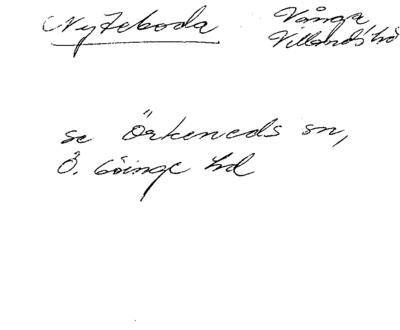 Nyteboda
Vånga
Villands hd
se Örkeneds sn,
Ö. Göinge hd